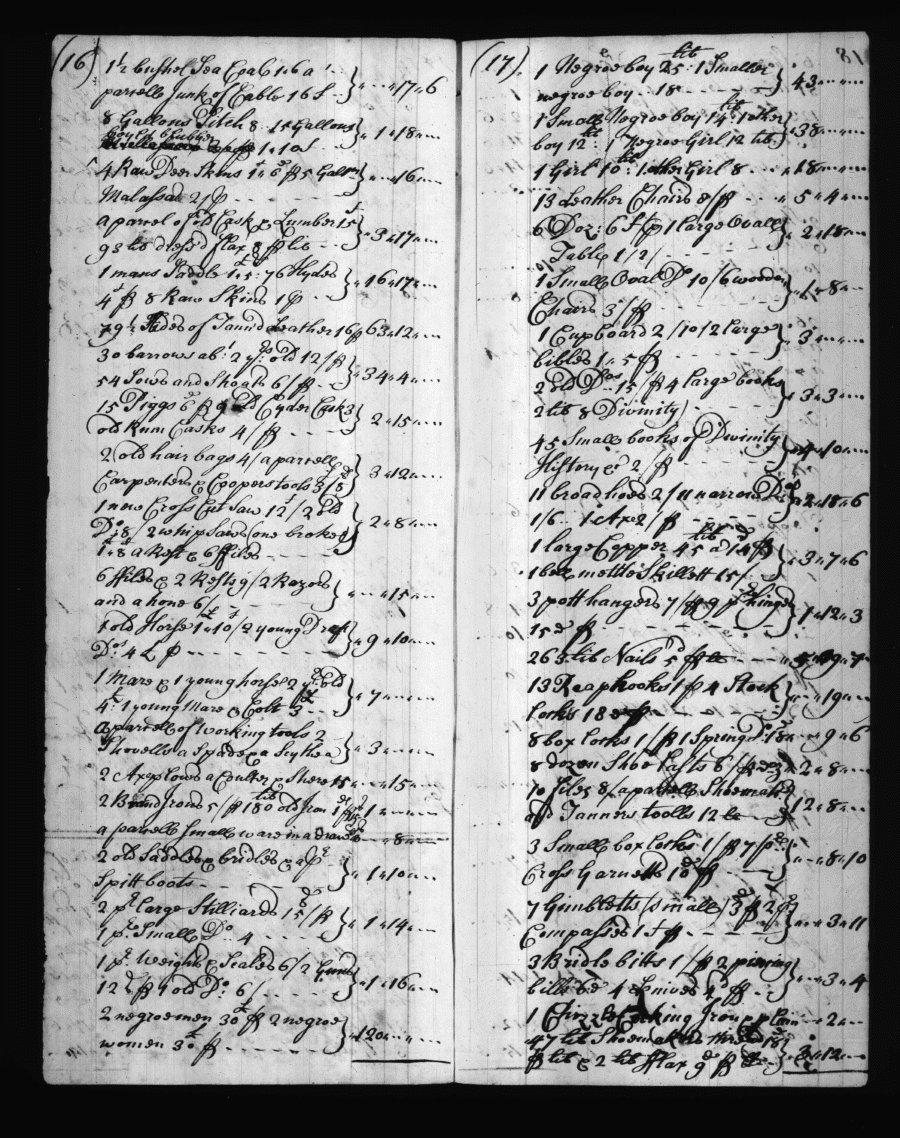 (16) 1½ bushel Sea Coal 1:6 a
parcelle Junk of Cable 16 S } " 17 " 6
8 Gallons Pitch 8 .. 15 Gallons
Goyl &
1 " 10 S } " 1 " 18 "
4 Raw Deer Skins 1 " 6 d ⅌ 5 Gallon
Malassas 2/ ⅌ } " 16 "
a parcel of old Cask & Lumber 15
93 lib dress'd flax 8 d ⅌ lib } " 3 " 17 "
1 mans Saddle 1 " 5 : 76 Hydes
4 s ⅌ 8 Raw Skins 1 ⅌ } " 16 " 17 "
79½ Sides of Tann'd Leather 16/ ⅌ 63 " 12 "
30 barrows abt 2 yr old 12/ ⅌
54 Sows and Shoats 6/ ⅌ } " 34 " 4 "
15 Piggs 6 d ⅌ 9 old Cyder Cask 3
old Rum Casks 4/ ⅌ } 2 " 15 "
2 old hair bags 4/ a parcelle
Carpenters & Coopers tools 3 / 8 } 3 " 12 "
1 new Cross Cut Saw 12/ 2 old
Do 18/ 2 whip Saws (one broke)
1 " 8 a Rest & 6 ffiles } 2 " 8 "
6 ffiles & 2 Rests 9/ 2 Razors
and a hone 6/ } " 15 "
1 old Horse 1 " 10/ 2 young Draft
Do 4 £ ⅌ } " 9 " 10 "
1 Mare & 1 young horse 2 yr old
4 : 1 young Mare & Colt 3 } " 7 "
a parcell of working tools 2
Shovells a Spade & a Sythea } " 3 "
2 Axes plows a Coulter & Shere 15 " 15 "
2 Brand Irons 5/ ⅌ 180 lib old Iron 1 d ⅌ 1 "
a parcelle Small ware in a drawer " 8 "
2 old Saddles & bridles & a pr
Spitt boots } " 1 " 10 "
2 pr large Stilliards 15/ ⅌
1 pr Small Do 4 } " 1 " 14 "
1 pr Weights & Scales 6/ 2 Guns
12 s ⅌ 1 old Do 6/ } " 1 " 16 "
2 negroe men 30 £ ⅌ 2 negroe
women 30 £ ⅌ } " 120 "
(17) 81
1 Negroe boy 25 : 1 Smaller
negroe boy 18 } " 43 "
1 Small Negroe boy 14 : 1 other
boy 12 : 1 Negroe Girl 12 lib } " 38 "
1 Girl 10 : 1 other Girl 8 " 18 "
13 Leather Chairs 8/ ⅌ " 5 " 4 "
6 Doz: 6 S ⅌ 1 large Ovall
Table 1/2/ } " 2 " 18 "
1 Small Oval Do 10/ 6 wooden
Chairs 3/ ⅌ } " 1 " 8 "
1 Cupboard 2/10/ 2 large
bibles 1 " 5 ⅌ } " 3 "
2 old Dos 15/ ⅌ 4 large books
2 lib 8 Divinity } " 3 " 3 "
45 Small books of Divinity
History &c 2/ ⅌ } " 4 " 10 "
11 broad hoes 2/ 11 narrow Dos
1/6 .. 1 Axe 2/ ⅌ } " 2 " 18 " 6
1 large Copper 45 lib a 1/4 d ⅌
1 bell mettle Skillett 15/ } " 3 " 7 " 6
3 pott hangers 7/ ⅌ 9 pr hinges
15 d ⅌ } " 1 " 12 " 3
263 lib Nails 5 d ⅌ " 5 " 9 " 7
13 Reaphooks 1/ ⅌ 4 Stock
locks 18 d ⅌ } " 19 "
8 box locks 1/ ⅌ 1 Spring Do 18 " 9 " 6
8 dozen Shoe Lasts 6/ ⅌ doz " 2 " 8 "
70 files 8/ a parcelle Shoemakers
and Tanners toolls 12 } 12 " 8 "
3 Small box locks 1/ ⅌ 7 pr
Cross Garnetts 10 d ⅌ } " 8 " 10
7 Gimbletts (small) 3 d ⅌ 2 pr
Compasses 1 S ⅌ } " 3 " 11
3 Bridle bitts 1/ ⅌ 2 pruning
bills 4 Knives 4 d ⅌ } " 3 " 4
1 Iron & plain " 2 "
47 lib Shoemakers thred 18 d
⅌ lib & 2 lib fflax 9 d ⅌ } " 3 " 12 "